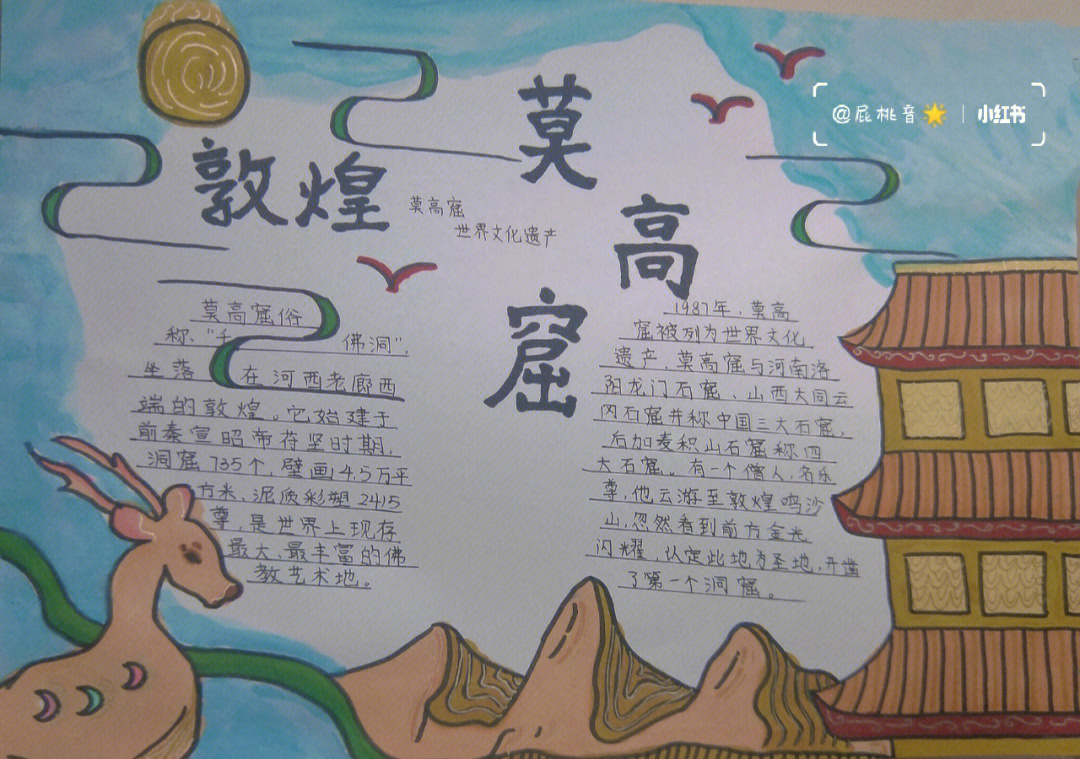 敦煌
莫高窟
莫高窟
世界文化遗产
莫高窟俗
称、“千佛洞”，
坐落在河西老廊西
端的敦煌。它始建于
前秦宣昭帝苻坚时期，
洞窟735个，壁画4.5万平
方米、泥质彩塑2415
尊，是世界上现存
最大、最丰富的佛
教艺术地。
1987年，莫高
窟被列为世界文化
遗产，莫高窟与河南洛
阳龙门石窟、山西大同云
冈石窟并称中国三大石窟，
后加麦积山石窟称四
大石窟。有一个僧人，名乐
尊，他云游至敦煌鸣沙
山，忽然看到前方金光
闪耀，认定此地为圣地，开凿
了第一个洞窟。
@屁桃音🌟｜小红书